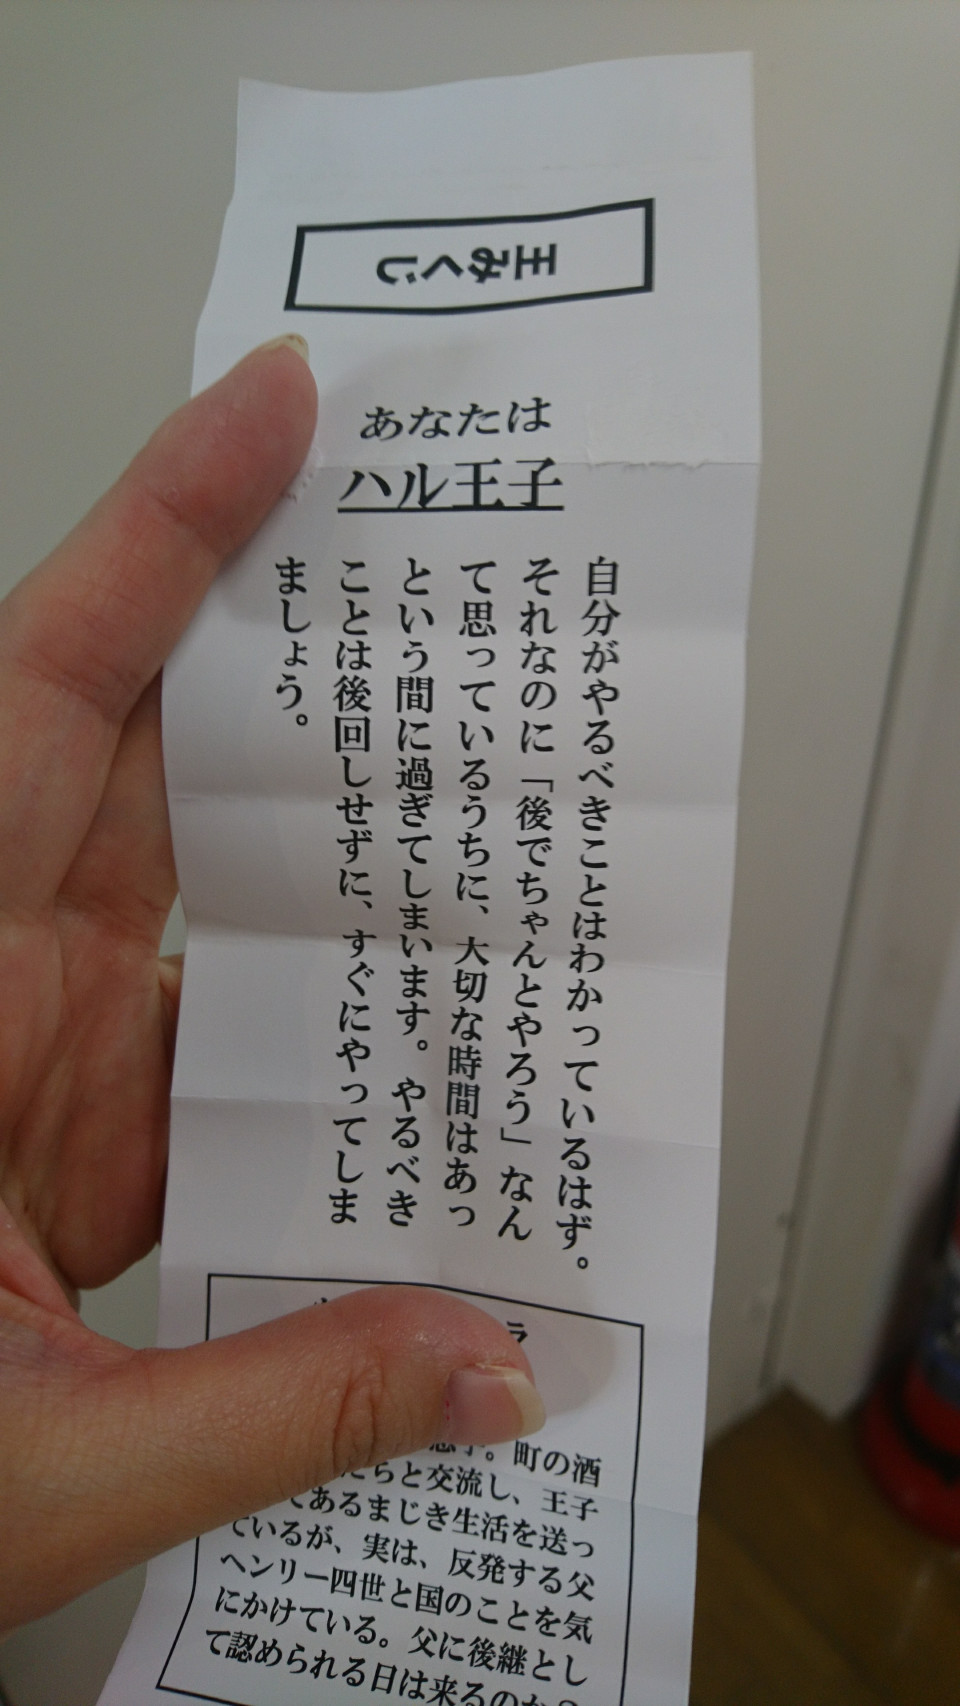 王みくじ
あなたは
ハル王子
自分がやるべきことはわかっているはず。
それなのに「後でちゃんとやろう」なん
て思っているうちに、大切な時間はあっ
という間に過ぎてしまいます。やるべき
ことは後回しせずに、すぐにやってしま
いましょう。
町の酒
らと交流し、王子
てあるまじき生活を送っ
ているが、実は、反発する父
ヘンリー四世と国のことを気
にかけている。父に後継とし
て認められる日は来るのか